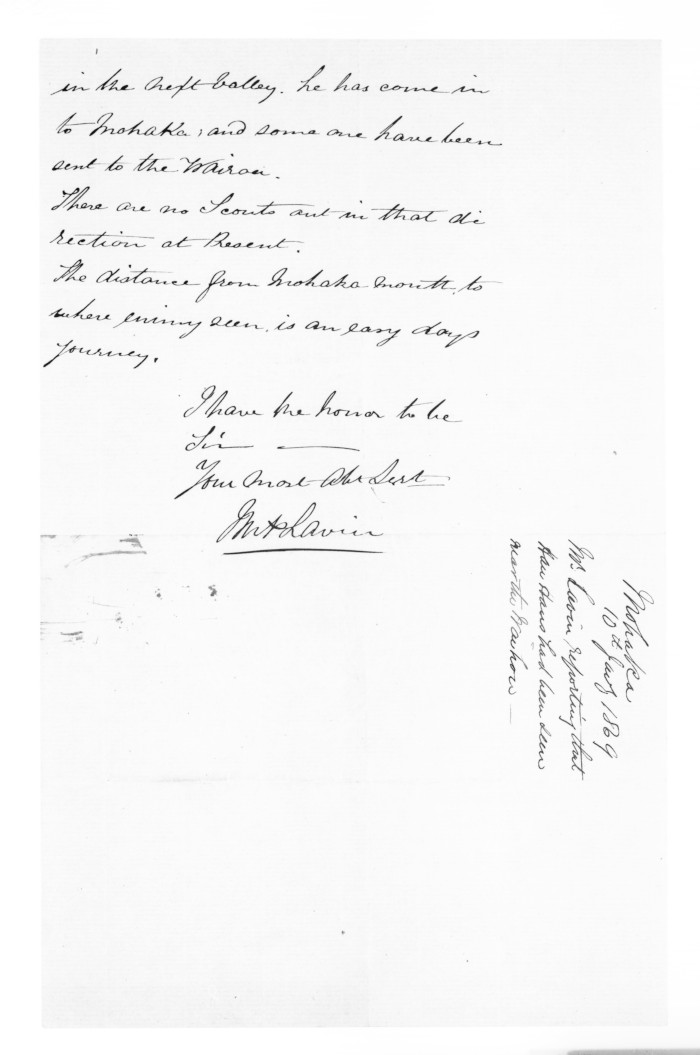 in the next Valley. he has come in
to Mohaka; and some one have been
sent to the Wairoa.
There are no Scouts out in that di
rection at Present.
The distance from Mohaka mouth, to
where enimy seen, is an easy days
journey.
I have the honor to be
Sir
Your most Obt Servt
Lavin
Mohaka
10th Jany 1869
Mr Lavin reporting that
Hau Haus had been seen
near the